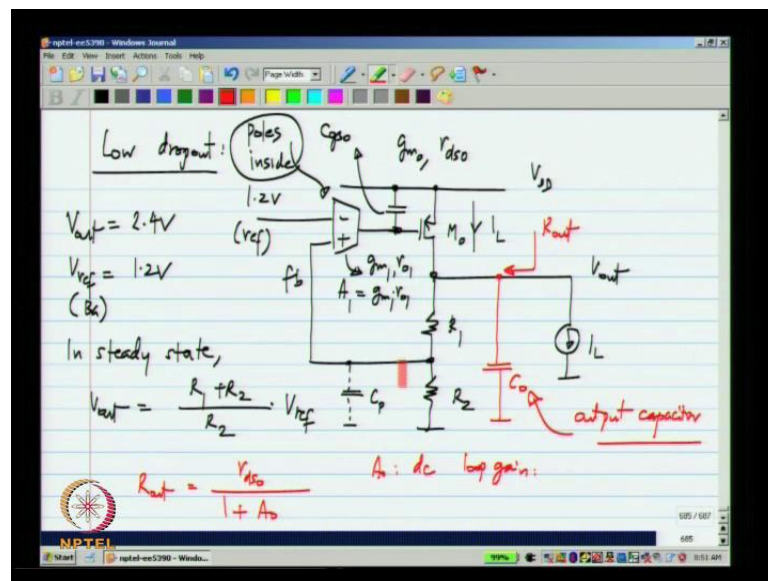 nptel-ee5390 - Windows Journal
File Edit View Insert Actions Tools Help
Page Width
Low dropout: Poles inside
Cgso
gm0, rds0
VDD
1.2V
(ref)
-
+
M0
IL
Rout
Vout = 2.4V
Vref = 1.2V
(BG)
fb
gm1, ro1
A1 = gm1.ro1
Vout
R1
IL
In steady state,
Vout = R1 + R2 / R2 . Vref
Cp
R2
Co
output capacitor
Rout = rds0 / 1 + A0
A0: dc loop gain:
NPTEL
685 / 687
685
Start
nptel-ee5390 - Windo...
99%
8:51 AM